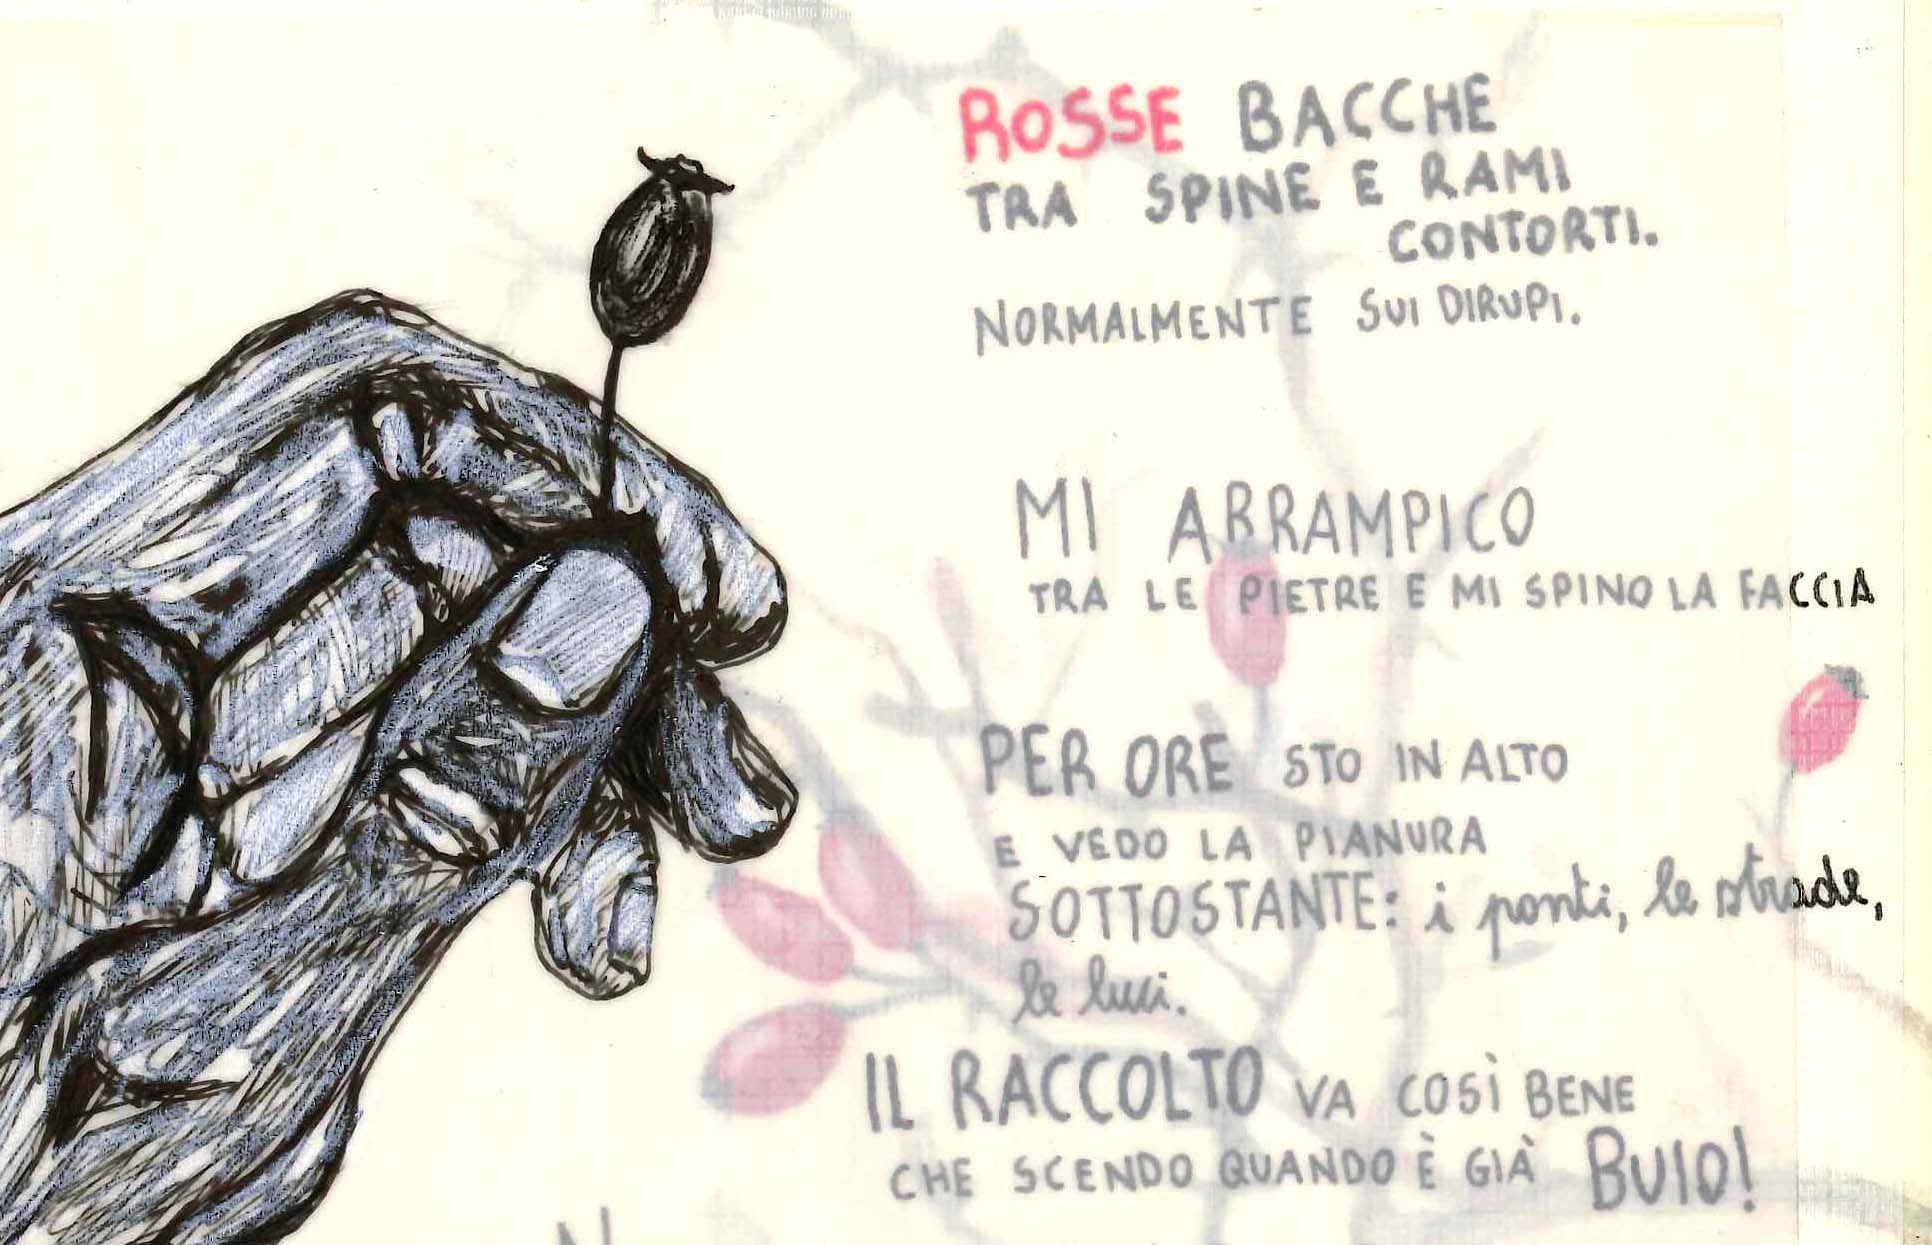 ROSSE BACCHE
TRA SPINE E RAMI
CONTORTI.
NORMALMENTE SUI DIRUPI.
MI ARRAMPICO
TRA LE PIETRE E MI SPINO LA FACCIA
PER ORE STO IN ALTO
E VEDO LA PIANURA
SOTTOSTANTE: i ponti, le strade,
le luci.
IL RACCOLTO VA COSÌ BENE
CHE SCENDO QUANDO È GIÀ BUIO!